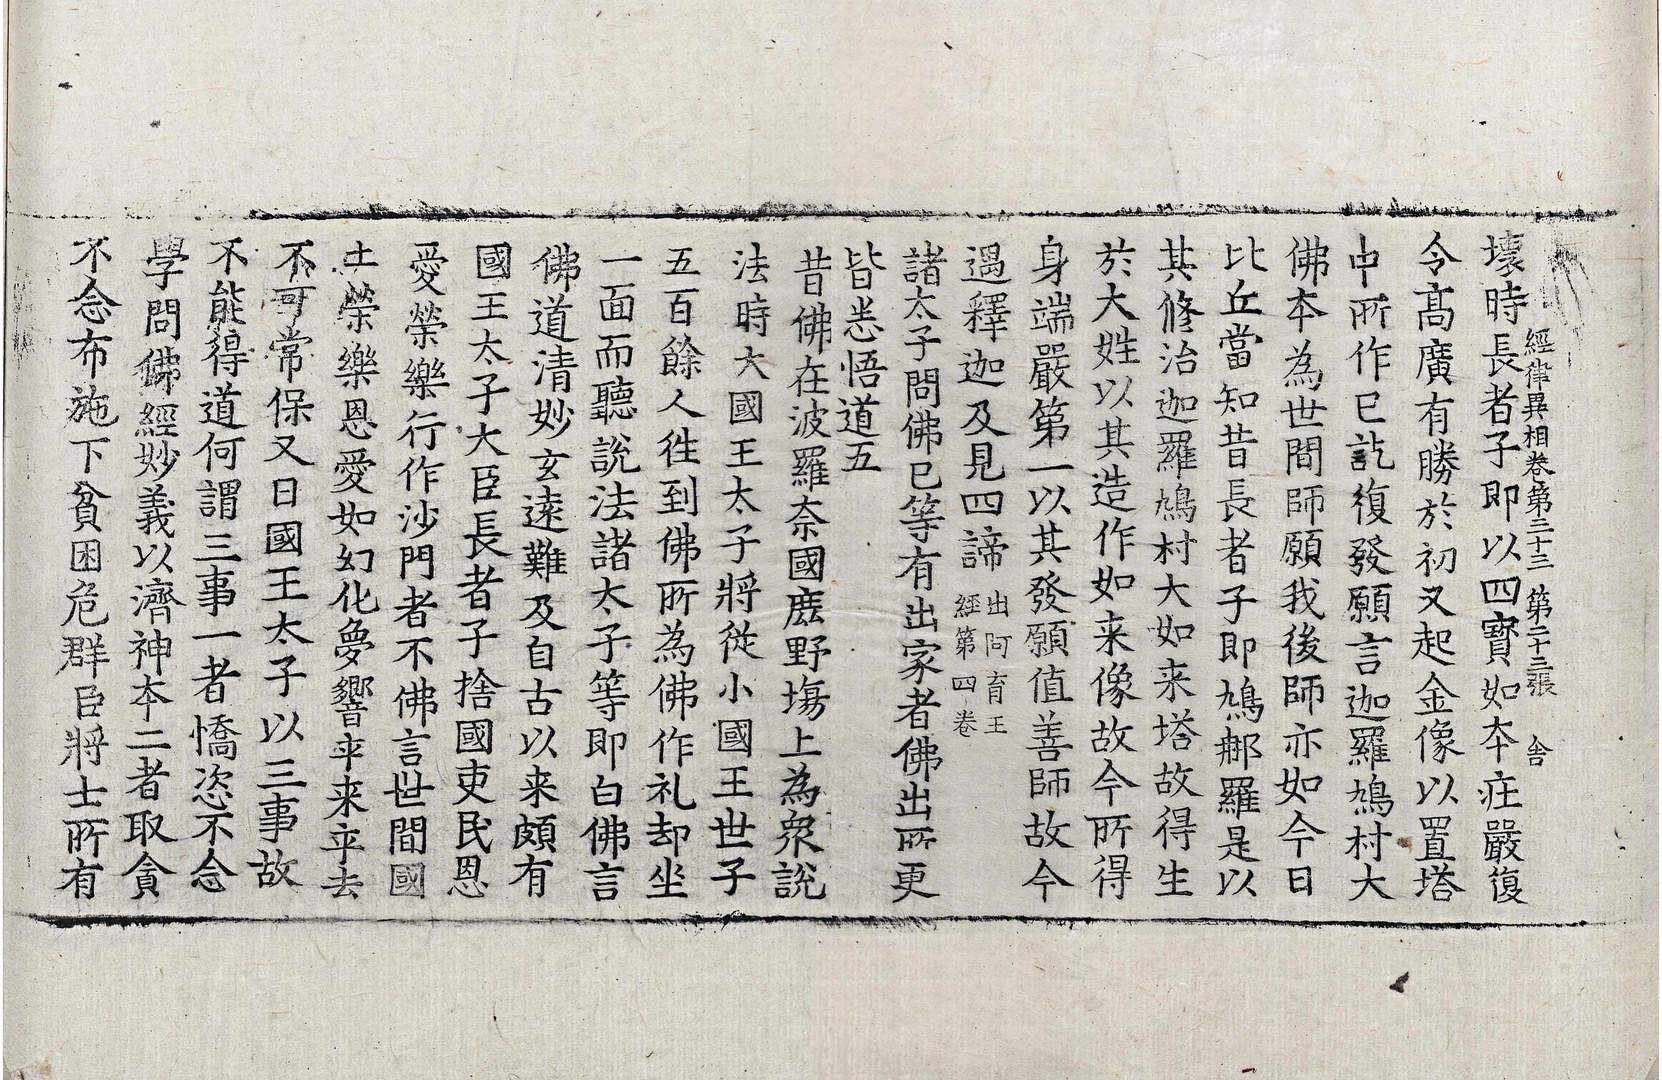 經律異相卷第三十三 第二十三張 舍
壞時長者子即以四寳如夲庄嚴復
令髙廣有勝於初又起金像以置塔
中所作巳訖復發願言迦羅鳩村大
佛夲為世間師願我後師亦如今日
比丘當知昔長者子即鳩郍羅是以
其修治迦羅鳩村大如来塔故得生
於大姓以其造作如来像故今所得
身端嚴第一以其發願值善師故今
遇釋迦及見四諦 出阿育王
經第四卷
諸太子問佛巳等有出家者佛出所更
皆悉悟道五
昔佛在波羅奈國鹿野場上為衆說
法時大國王太子將從小國王世子
五百餘人徃到佛所為佛作礼却坐
一面而聽說法諸太子等即白佛言
佛道清妙玄遠難及自古以来頗有
國王太子大臣長者子捨國吏民恩
愛榮樂行作沙門者不佛言世間國
土榮樂恩愛如幻化夢響卒来卒去
不可常保又曰國王太子以三事故
不能得道何謂三事一者憍恣不念
學問佛經妙義以濟神夲二者取貪
不念布施下貧困危群臣將士所有